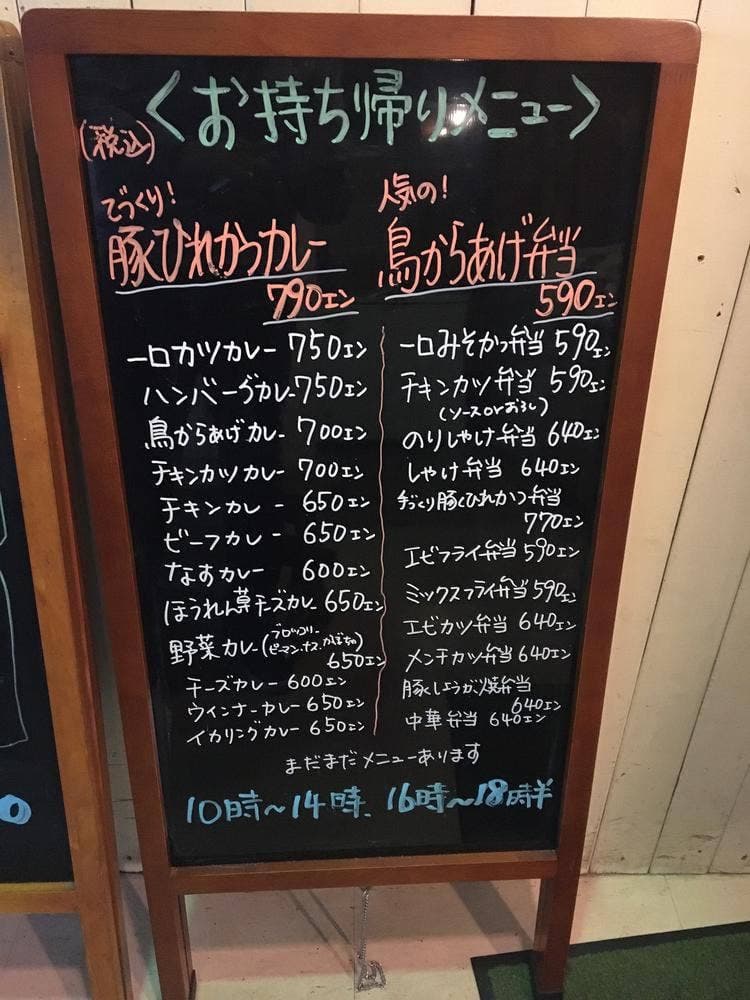 <お持ち帰りメニュー>
(税込)
てづくり!
豚ひれかつカレー
790エン
一口カツカレー 750エン
ハンバーグカレー 750エン
鳥からあげカレー 700エン
チキンカツカレー 700エン
チキンカレー 650エン
ビーフカレー 650エン
なすカレー 600エン
ほうれん草チーズカレー 650エン
野菜カレー(ブロッコリー
ピーマン、ナス、かぼちゃ)
650エン
チーズカレー 600エン
ウィンナーカレー 650エン
イカリングカレー 650エン
人気の!
鳥からあげ弁当
590エン
一口みそかつ弁当 590エン
チキンカツ弁当 590エン
(ソースorおろし)
のりしゃけ弁当 640エン
しゃけ弁当 640エン
手づくり豚ひれかつ弁当
770エン
エビフライ弁当 590エン
ミックスフライ弁当 590エン
エビカツ弁当 640エン
メンチカツ弁当 640エン
豚しょうが焼弁当
640エン
中華弁当 640エン
まだまだメニューあります
10時〜14時、16時〜18時半